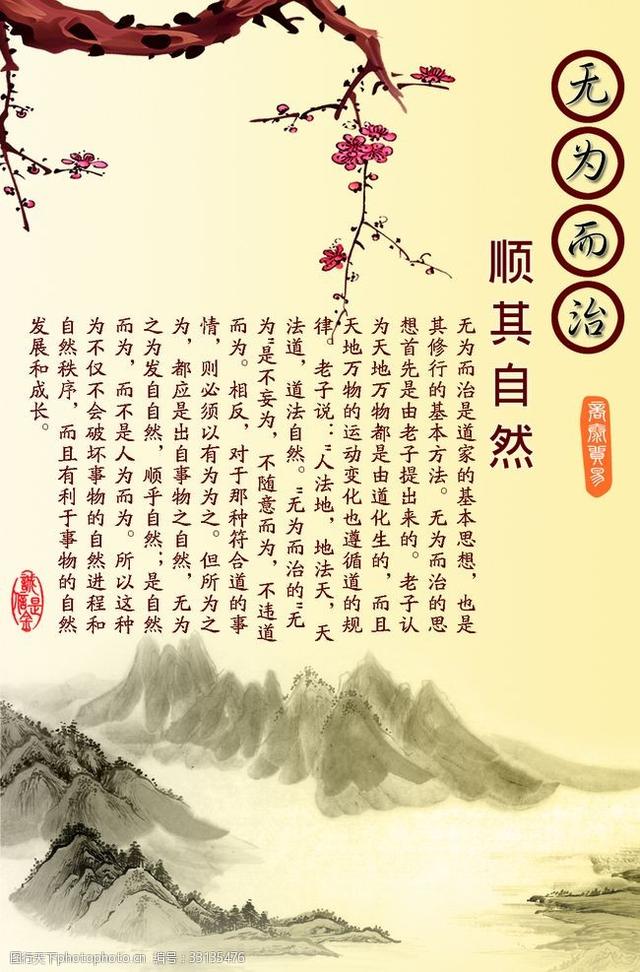 无为而治
顺其自然
无为而治是道家的基本思想，也是
其修行的基本方法。无为而治的思
想首先是由老子提出来的。老子认
为天地万物都是由道化生的，而且
天地万物的运动变化也遵循道的规
律。老子说："人法地，地法天，天
法道，道法自然。"无为而治的"无
为"是不妄为，不随意而为，不违道
而为。相反，对于那种符合道的事
情，则必须以有为为之。但所为之
为，都应是出自事物之自然，无为
之为发自自然，顺乎自然；是自然
而为，而不是人为而为。所以这种
为不仅不会破坏事物的自然进程和
自然秩序，而且有利于事物的自然
发展和成长。
誠信是金
图行天下 photophoto.cn 编号：33135476